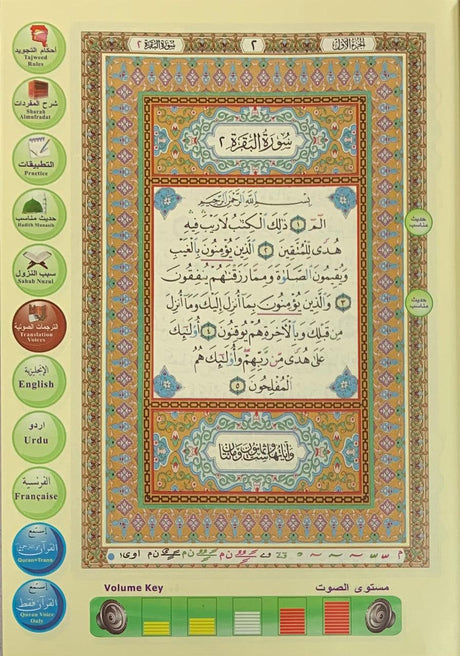 أحكام التجويد
Tajweed
Rules
شرح المفردات
Sharah
Almufradat
التطبيقات
Practice
حديث مناسب
Hadith Munasib
سبب النزول
Sabab Nuzul
الترجمات الصوتية
Translation
Voices
الإنجليزية
English
اردو
Urdu
الفرنسية
Française
إستمع
Quran+Trans
إستمع
القرآن فقط
Quran Voice
Only
سورة البقرة ٢
٢
الجزء الأول
سورة البقرة ٢
بسم الله الرحمن الرحيم
الم ١ ذلك الكتب لا ريب فيه
هدى للمتقين ٢ الذين يؤمنون بالغيب
ويقيمون الصلوة ومما رزقنهم ينفقون
٣ والذين يؤمنون بما أنزل إليك وما أنزل
من قبلك وبالآخرة هم يوقنون ٤ أولئك
على هدى من ربهم وأولئك هم
المفلحون ٥
وآياتها ست وثمانون ومائتان
حديث
مناسب
حديث
مناسب
Volume Key
مستوى الصوت